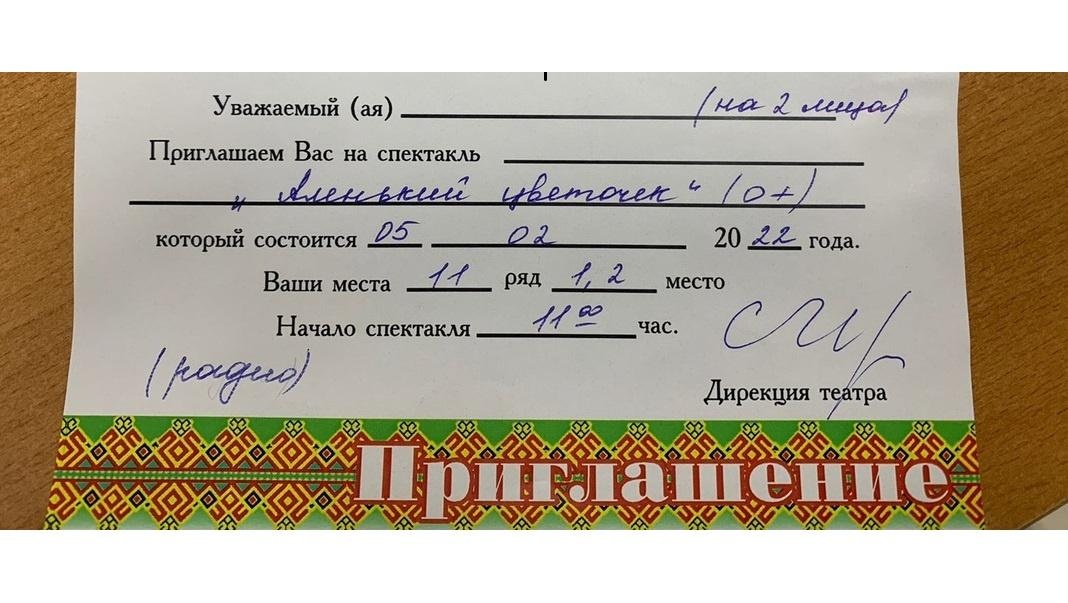 Уважаемый (ая) (на 2 лица)
Приглашаем Вас на спектакль
„Аленький цветочек“ (0+)
который состоится 05 02 2022 года.
Ваши места 11 ряд 1, 2 место
Начало спектакля 11 00 час.
(радио)
Дирекция театра
Приглашение